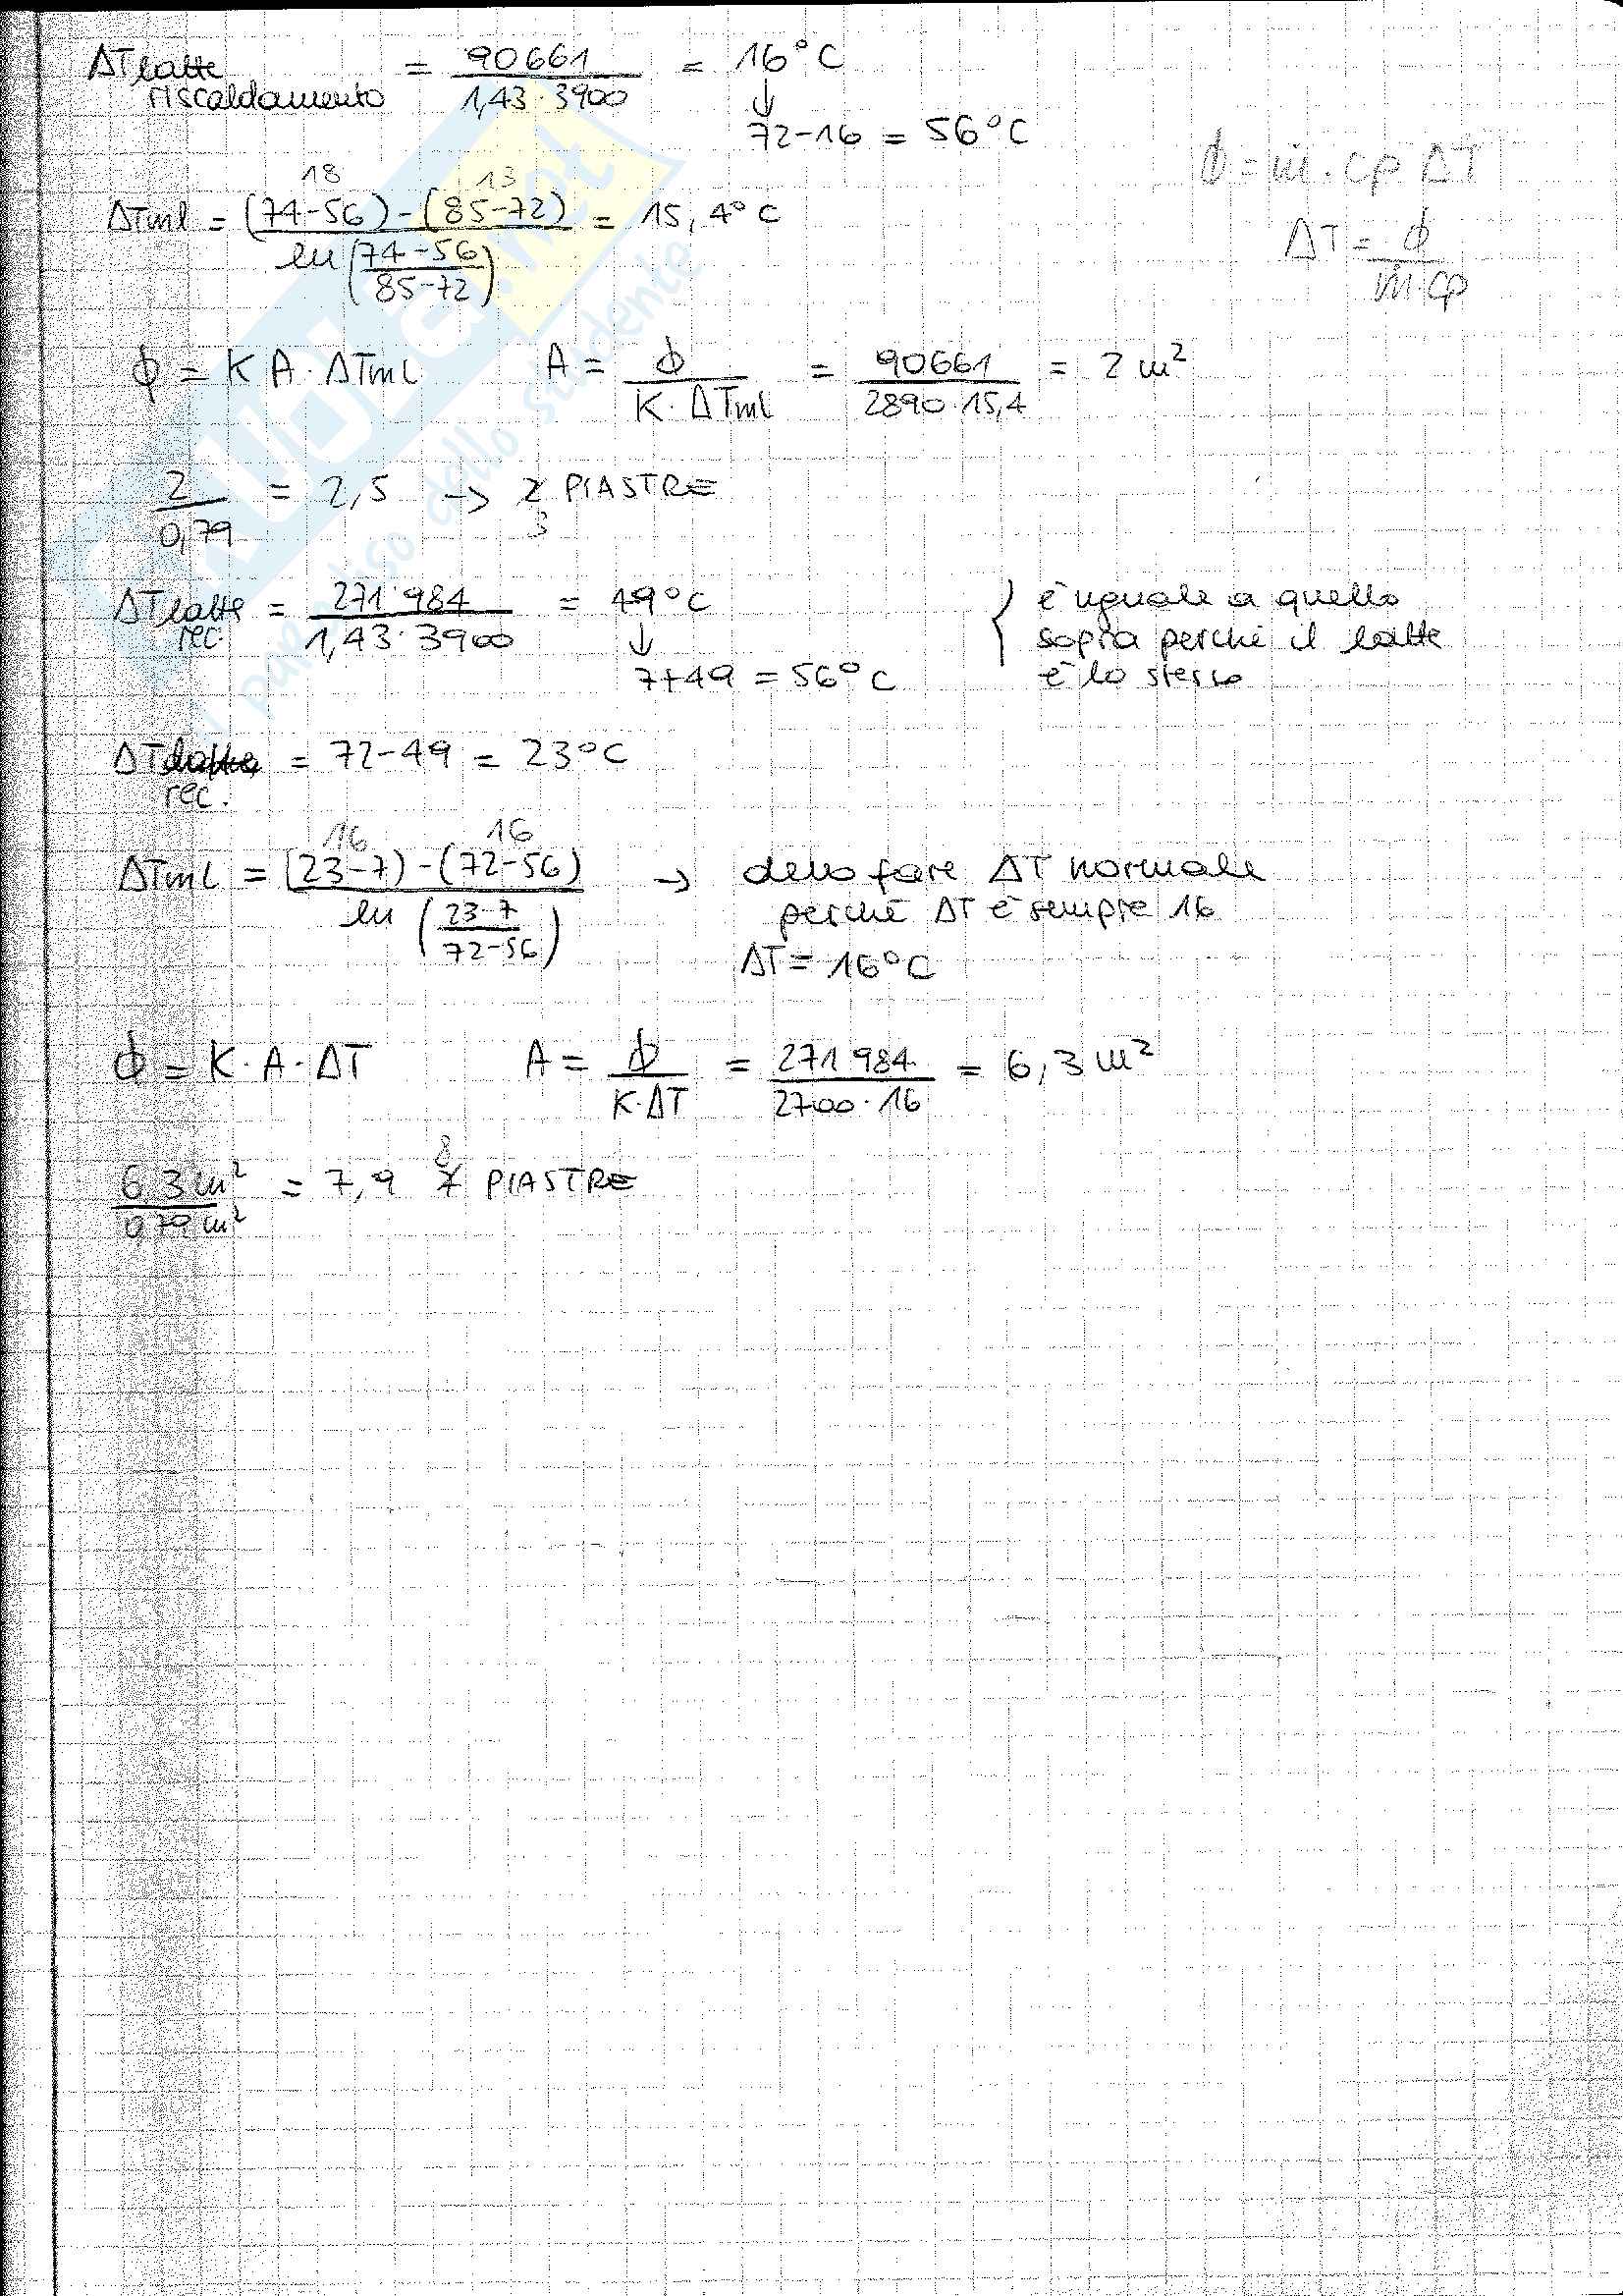 ΔT latte riscaldamento = 90661 / 1,43·3900 = 16°C
↓
72-16 = 56°C
ϕ = ṁ·cp ΔT
18 13
ΔTml = (74-56)-(85-72) / ln(74-56 / 85-72) = 15,4°C
ΔT = ϕ / ṁ·cp
ϕ = K A·ΔTml A = ϕ / K·ΔTml = 90661 / 2890·15,4 = 2 m²
2 / 0,79 = 2,5 → 2 PIASTRE
3
ΔT latte rec. = 271984 / 1,43·3900 = 49°C
↓
7+49 = 56°C
} è uguale a quello
sopra perché il latte
è lo stesso
ΔT latte rec. = 72-49 = 23°C
16 16
ΔTml = (23-7)-(72-56) / ln(23-7 / 72-56) → devo fare ΔT normale
perché ΔT è sempre 16
ΔT = 16°C
ϕ = K·A·ΔT A = ϕ / K·ΔT = 271984 / 2700·16 = 6,3 m²
8
6,3 m² / 0,79 m² = 7,9 7 PIASTRE